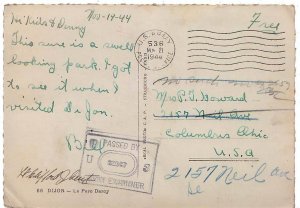 Nov-19-44
Free
Hi Nicks & Denny
This sure is a swell
looking park. I got
to see it when I
visited Dijon.
Bill
U.S. ARMY
536
NOV 21
1944
Mrs P.T. Howard
2157 Neil Ave
Columbus Ohio
U.S.A
2157 Neil Ave
PASSED BY
U
ARMY EXAMINER
88 DIJON - Le Parc Darcy